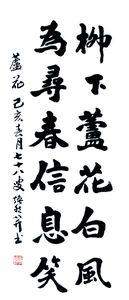 柳下蘆花白風
為尋春信息笑
蘆花 己亥春月七十八叟
書